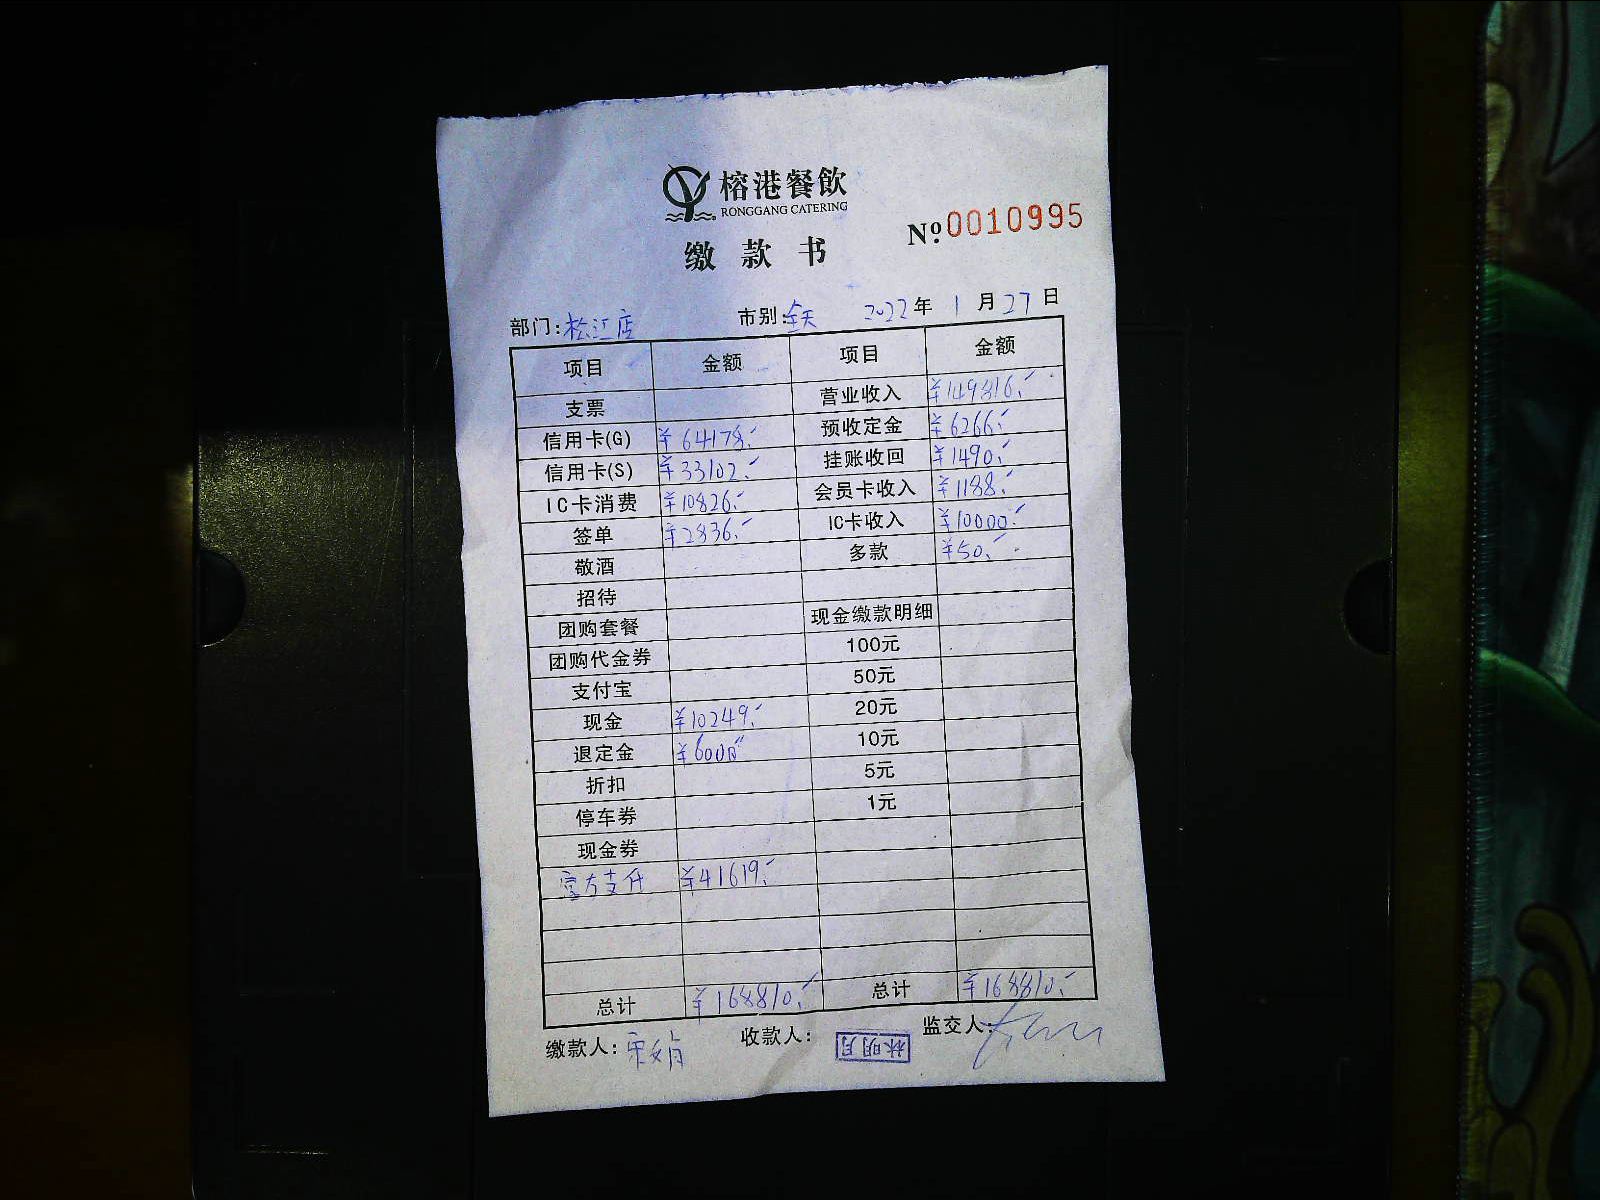 榕港餐飲
RONGGANG CATERING
缴款书 №0010995
部门:松江店 市别:全天 2022年1月27日
项目 金额 项目 金额
支票 营业收入 ¥149816.-
信用卡(G) ¥64178.- 预收定金 ¥6266.-
信用卡(S) ¥33102.- 挂账收回 ¥1490.-
IC卡消费 ¥10826.- 会员卡收入 ¥1188.-
签单 ¥2836.- IC卡收入 ¥10000.-
敬酒 多款 ¥50.-
招待
团购套餐 现金缴款明细
团购代金券 100元
支付宝 50元
现金 ¥10249.- 20元
退定金 ¥6000.- 10元
折扣 5元
停车券 1元
现金券
官方支付 ¥41619.-
总计 ¥168810.- 总计 ¥168810.-
缴款人: 收款人:林明月 监交人: